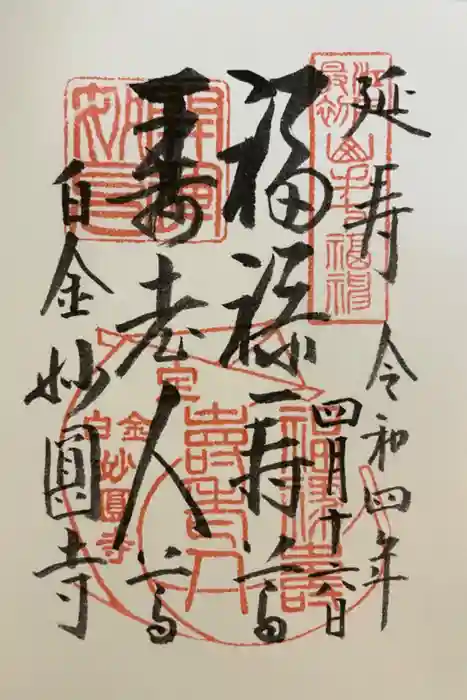 延寿
令和四年
四月十六日
福禄寿
壽老人
白金
妙圓寺
江戸最初山手七福神
福禄壽
壽老人
白金妙圓寺